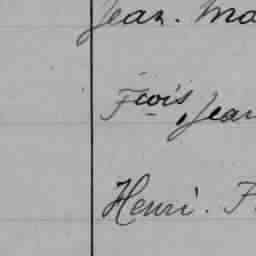 Jean. Ma
Fcois Jean
Henri. F.